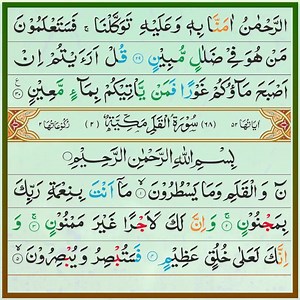 الرَّحْمٰنُ اٰمَنَّا بِهٖ وَعَلَيْهِ تَوَكَّلْنَا ۚ فَسَتَعْلَمُوْنَ
مَنْ هُوَ فِيْ ضَلٰلٍ مُّبِيْنٍ ﴿۲۹﴾ قُلْ اَرَءَيْتُمْ اِنْ
اَصْبَحَ مَآؤُكُمْ غَوْرًا فَمَنْ يَّاْتِيْكُمْ بِمَآءٍ مَّعِيْنٍ ﴿۳۰﴾
اٰيَاتُهَا ٥٢ (٦٨) سُوْرَةُ الْقَلَمِ مَكِّيَّةٌ (٢) رُكُوْعَاتُهَا ٢
بِسْمِ اللّٰهِ الرَّحْمٰنِ الرَّحِيْمِ
نٓ وَالْقَلَمِ وَمَا يَسْطُرُوْنَ ﴿۱﴾ مَآ اَنْتَ بِنِعْمَةِ رَبِّكَ
بِمَجْنُوْنٍ ﴿۲﴾ وَاِنَّ لَكَ لَاَجْرًا غَيْرَ مَمْنُوْنٍ ﴿۳﴾ وَ
اِنَّكَ لَعَلٰى خُلُقٍ عَظِيْمٍ ﴿۴﴾ فَسَتُبْصِرُ وَيُبْصِرُوْنَ ﴿۵﴾